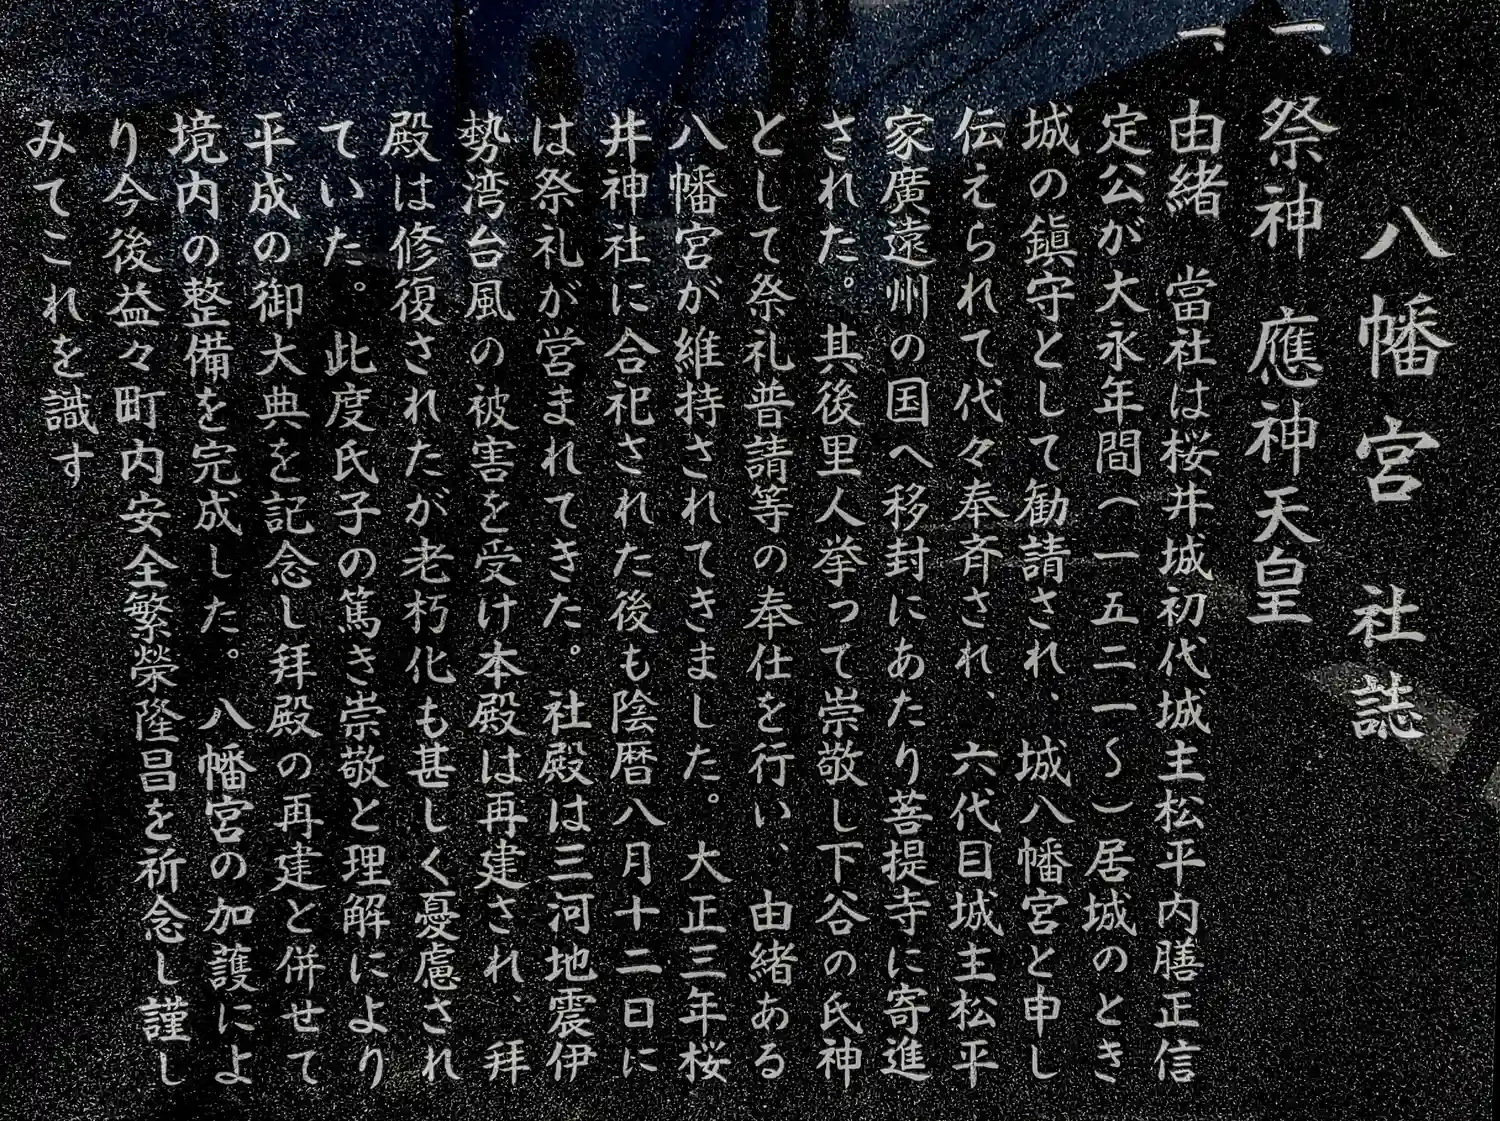 八幡宮 社誌
一、祭神 應神天皇
一、由緒 當社は桜井城初代城主松平内膳正信
定公が大永年間(一五二一〜)居城のとき
城の鎮守として勧請され、城八幡宮と申し
伝えられて代々奉斉され、六代目城主松平
家廣遠州の国へ移封にあたり菩提寺に寄進
された。其後里人挙って崇敬し下谷の氏神
として祭礼普請等の奉仕を行い、由緒ある
八幡宮が維持されてきました。大正三年桜
井神社に合祀された後も陰暦八月十二日に
は祭礼が営まれてきた。社殿は三河地震伊
勢湾台風の被害を受け本殿は再建され、拝
殿は修復されたが老朽化も甚しく憂慮され
ていた。此度氏子の篤き崇敬と理解により
平成の御大典を記念し拝殿の再建と併せて
境内の整備を完成した。八幡宮の加護によ
り今後益々町内安全繁榮隆昌を祈念し謹し
みてこれを識す